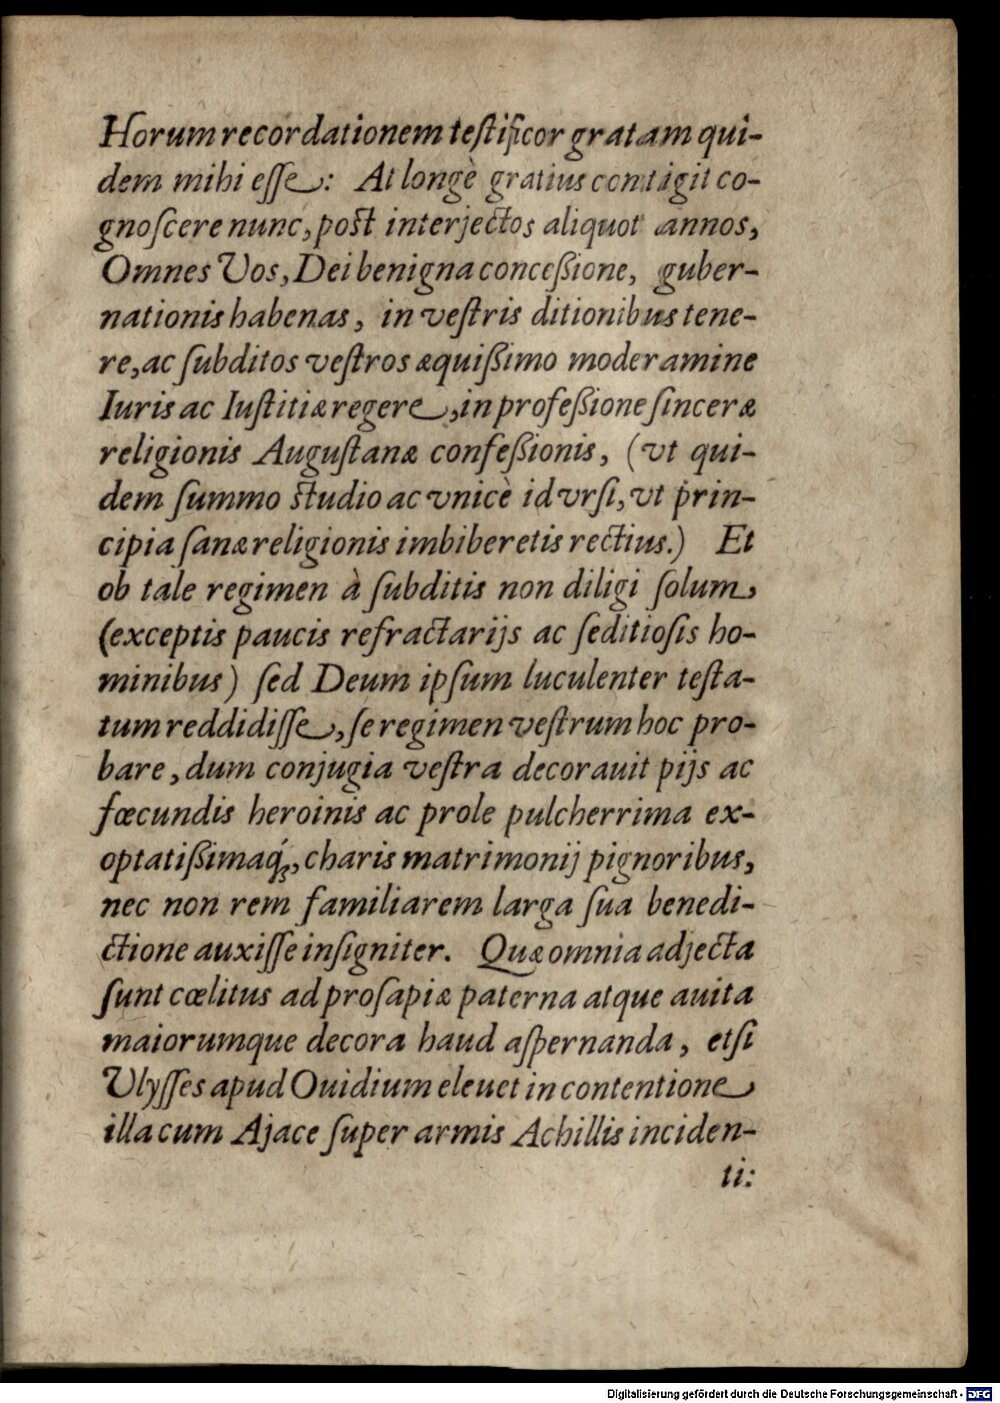 Horum recordationem teſtificor gratam qui-
dem mihi eſſe: At longè gratius contigit co-
gnoſcere nunc, poſt interjectos aliquot annos,
Omnes Vos, Dei benigna conceßione, guber-
nationis habenas, in veſtris ditionibus tene-
re, ac ſubditos veſtros æquißimo moderamine
Iuris ac Iuſtitiæ regere, in profeßione ſinceræ
religionis Auguſtanæ confeßionis, (vt qui-
dem ſummo ſtudio ac vnicè id vrſi, vt prin-
cipia ſanæ religionis imbiberetis rectius.) Et
ob tale regimen à ſubditis non diligi ſolum
(exceptis paucis refractarijs ac ſeditioſis ho-
minibus) ſed Deum ipſum luculenter teſta-
tum reddidiſſe, ſe regimen veſtrum hoc pro-
bare, dum conjugia veſtra decorauit pijs ac
fœcundis heroinis ac prole pulcherrima ex-
optatißimaq́ꝫ, charis matrimonij pignoribus,
nec non rem familiarem larga ſua benedi-
ctione auxiſſe inſigniter. Quæ omnia adjecta
ſunt cœlitus ad proſapiæ paterna atque auita
maiorumque decora haud aſpernanda, etſi
Vlyſſes apud Ouidium eleuet in contentione
illa cum Ajace ſuper armis Achillis inciden-
ti:
Digitalisierung gefördert durch die Deutsche Forschungsgemeinschaft - DFG